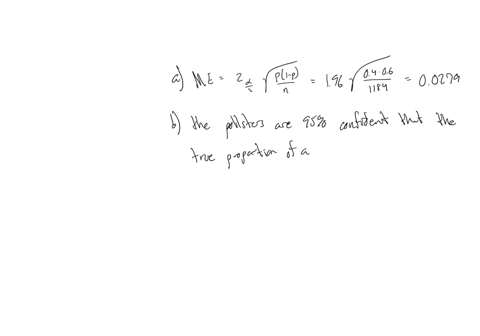 a) ME = z_{α/2} √(p(1-p)/n) = 1.96 √(0.4·0.6/1184) = 0.0279
b) the pollsters are 95% confident that the
true proportion of a